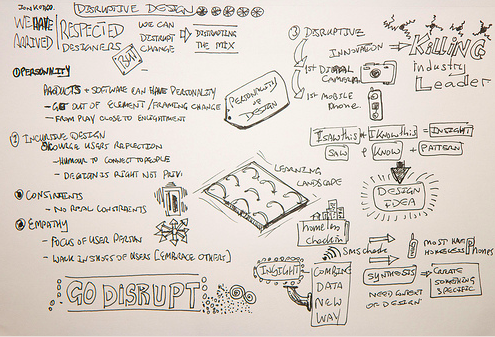 JON KOLKO.
DISRUPTIVE DESIGN
WE HAVE
ARRIVED
RESPECTED
DESIGNERS
WE CAN
DISRUPT
CHANGE
DISRUPTING
THE MIX
BUT
① PERSONALITY
PRODUCTS + SOFTWARE CAN HAVE PERSONALITY
- GET OUT OF ELEMENT / FRAMING CHANGE
- FROM PLAY CLOSE TO ENLIGHTMENT
PERSONALITY
OF
DESIGN
DESIGN
USERS REFLECTION
- HUMOUR TO CONNECT TO PEOPLE
- DECISION IS RIGHT NOT
CONSTRAINTS
- NO REAL CONSTRAINTS
EMPATHY
- FOCUS OF USER PERSON
- WALK IN SHOES OF USERS [EMBRACE OTHERS]
GO DISRUPT
LEARNING
LANDSCAPE
③ DISRUPTIVE
INNOVATION
KILLING
industry
Leader
1ST DIGITAL
CAMERA
1ST MOBILE
PHONE.
I saw this + I know this = INSIGHT
SAW + KNOW + PATTERN
DESIGN
IDEA
homeless
check in
SMS check
MOST HAS
HOMELESS PHONES
INSIGHT
COMBINE
DATA
NEW
WAY
SYNTHESIS
NEED
OR DESIGN
CREATE
SOMETHING
SPECIFIC